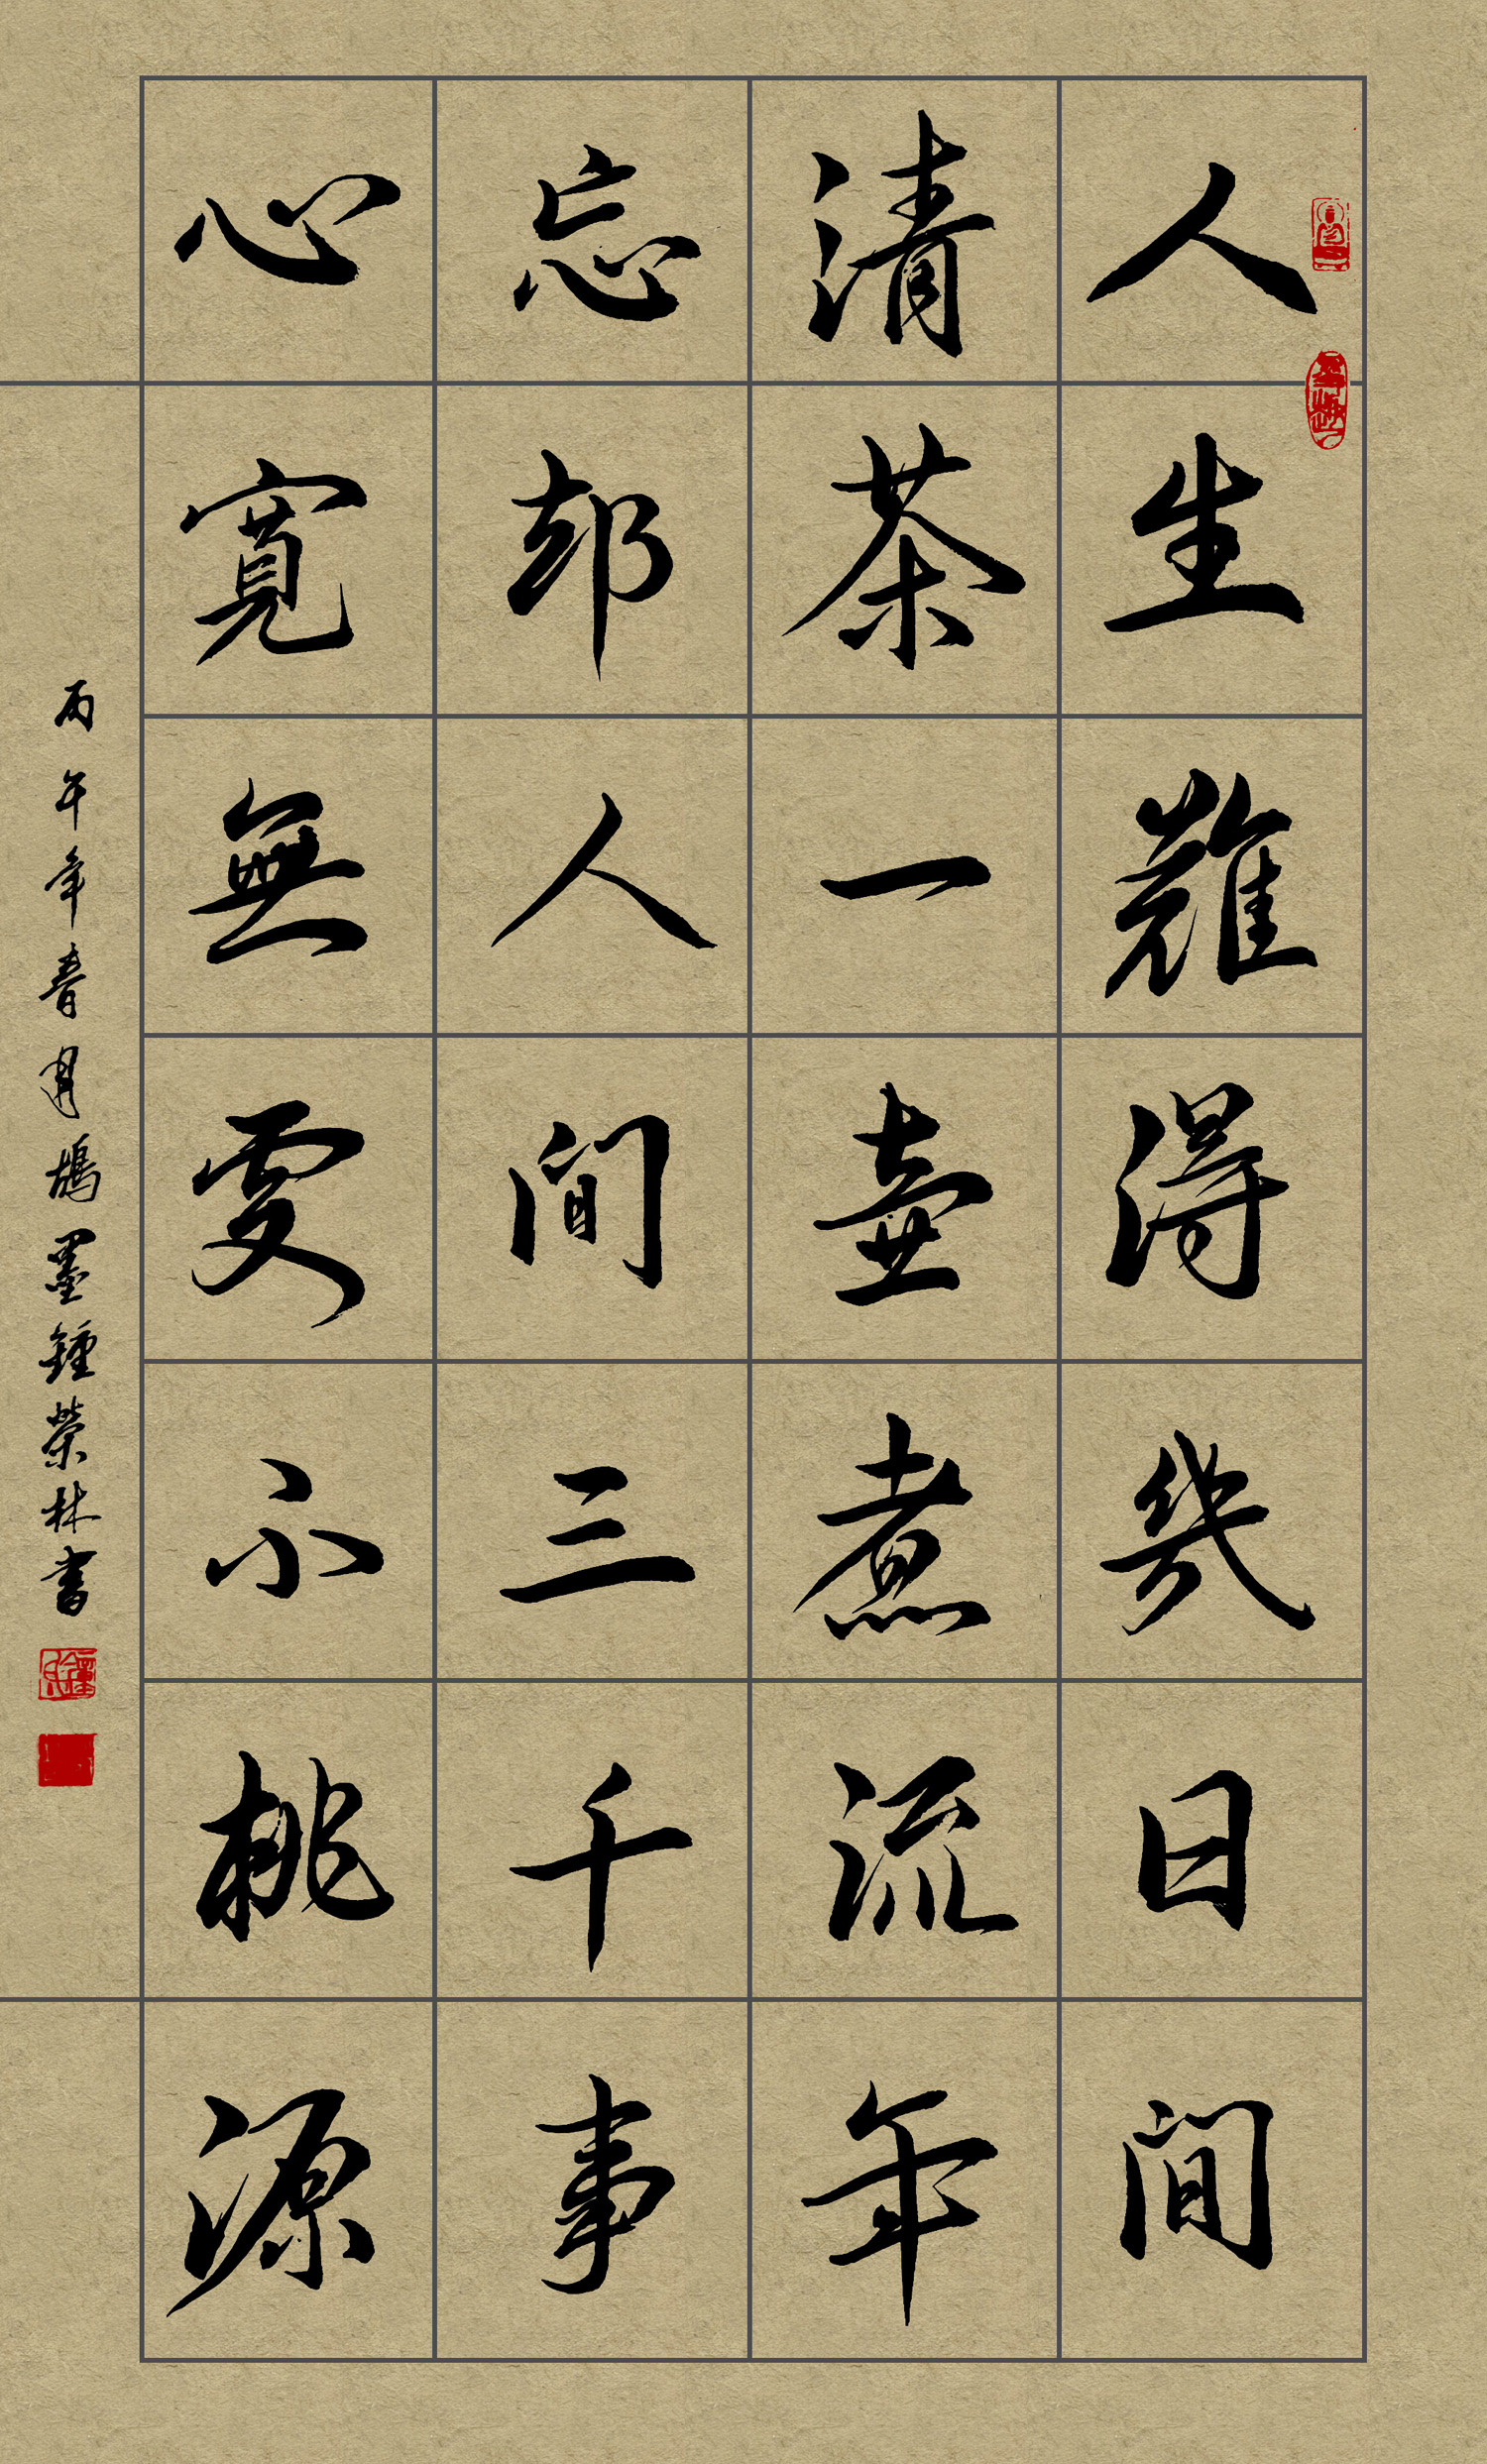 人生難得幾日間
清茶一壺煮流年
忘却人間三千事
心寬無處不桃源
丙午年春月墨鍾榮林書